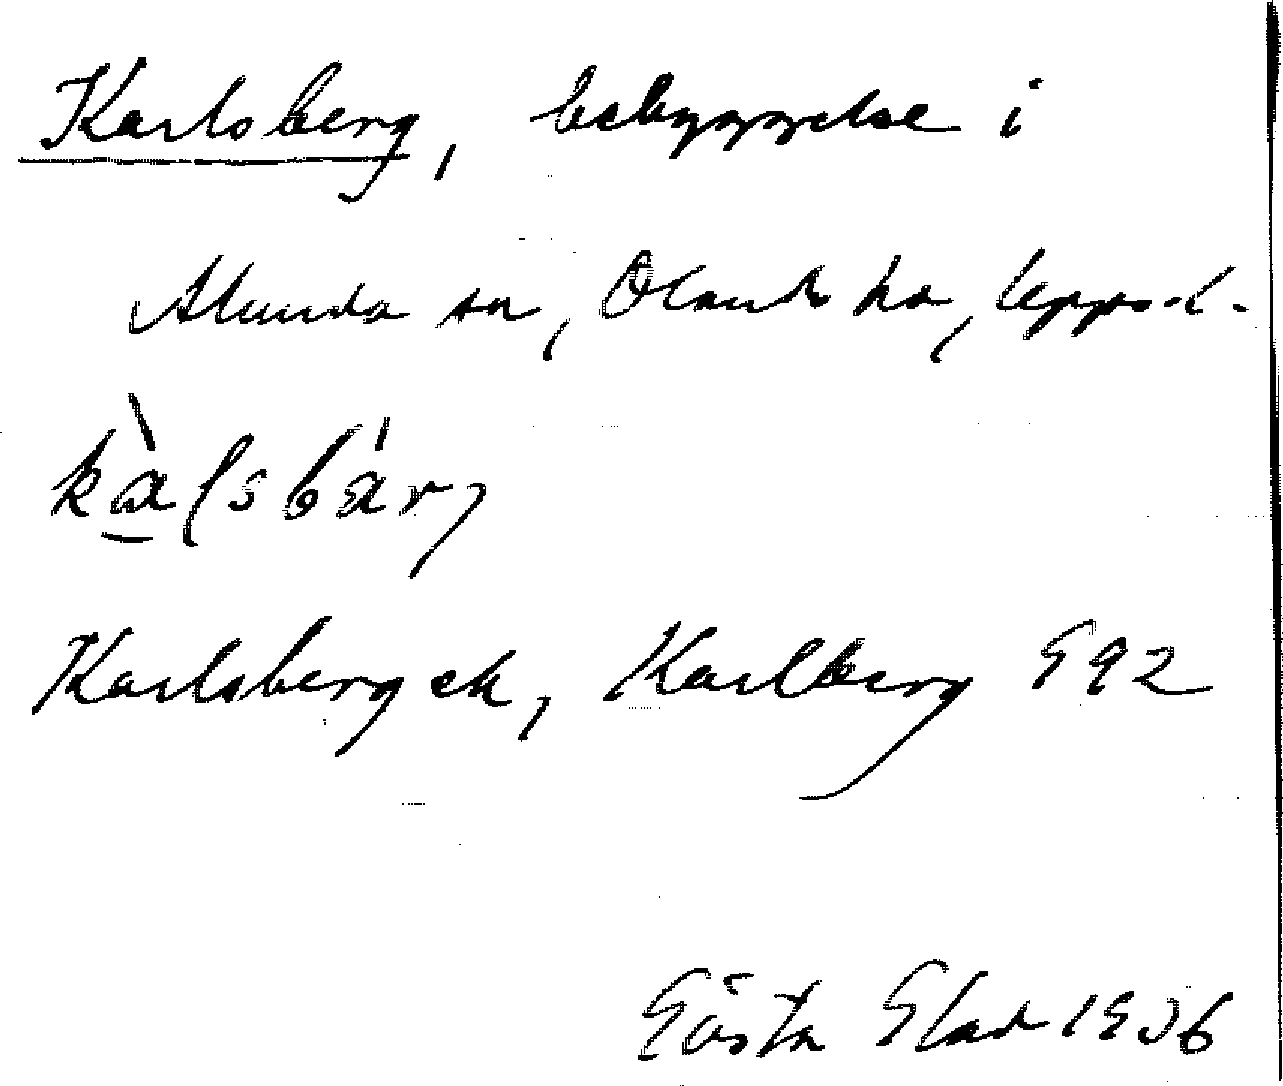 Karlsberg, bebyggelse i
Alunda sn, Olands hd, Upps. l.
kàlsbár,
Karlsberg ek, Karlberg G 92
Gösta Glad 1936